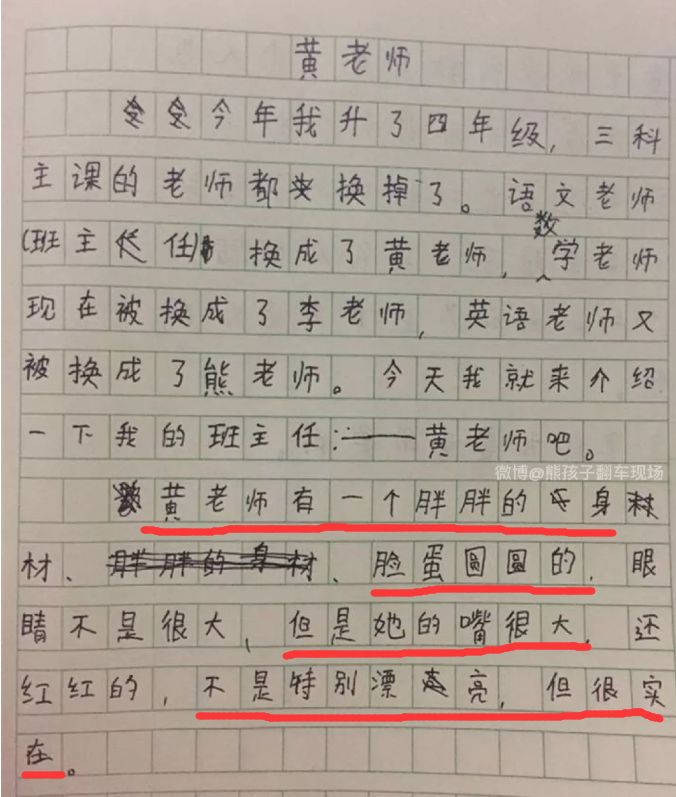 黄老师
今年我升了四年级，三科
主课的老师都换掉了。语文老师
(班主任)换成了黄老师，数学老师
现在被换成了李老师，英语老师又
被换成了熊老师。今天我就来介绍
一下我的班主任:——黄老师吧。
微博@熊孩子翻车现场
黄老师有一个胖胖的身
材、胖胖的身材、脸蛋圆圆的，眼
睛不是很大，但是她的嘴很大，还
红红的，不是特别漂亮，但很实
在。